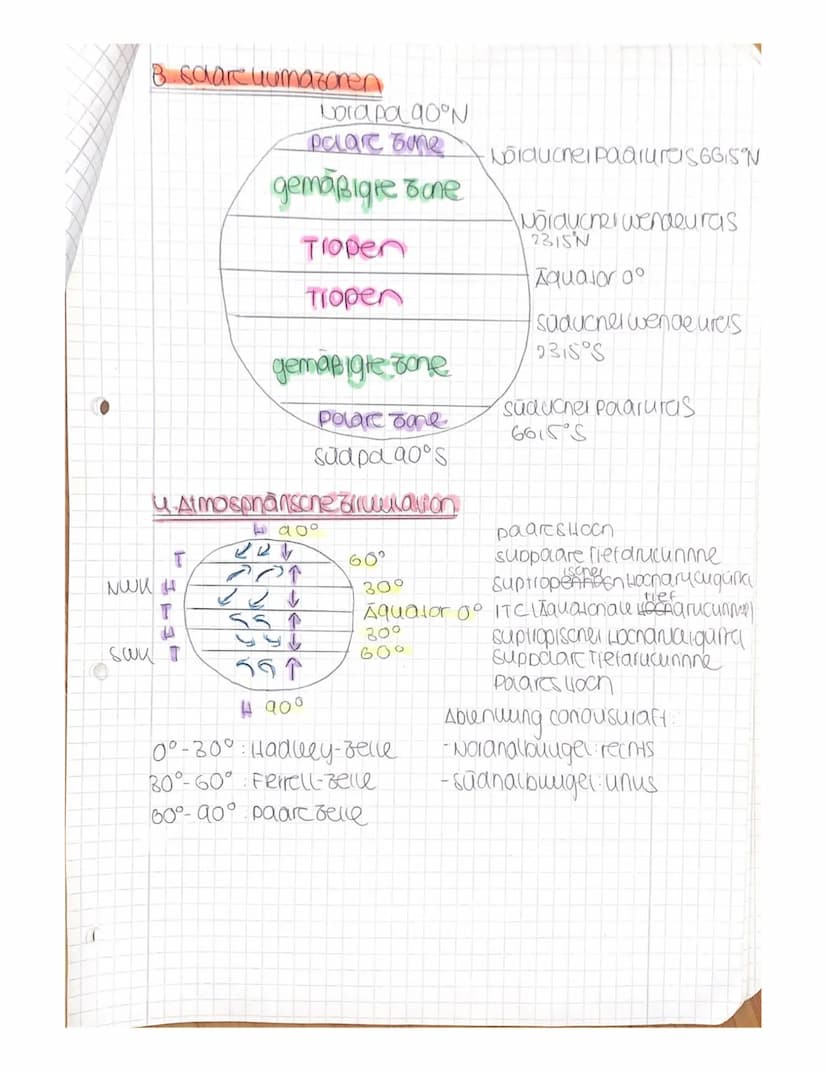 3. Solare Klimazonen
Nordpol 90°N
Polare Zone
Nördlicher Polarkreis 66,5°N
gemäßigte Zone
Nördlicher Wendekreis
23,5°N
Tropen
Äquator 0°
Tropen
Südlicher Wendekreis
23,5°S
gemäßigte Zone
Südlicher Polarkreis
66,5°S
Polare Zone
Südpol 90°S
4. Atmosphärische Zirkulation
H 90°
Polares Hoch
T 60° Subpolare Tiefdruckrinne
NWK H 30° Subtropischer Hochdruckgürtel
T Äquator 0° ITC/Äquatoriale Tiefdruckrinne
H 30° Subtropischer Hochdruckgürtel
SWK T 60° Subpolare Tiefdruckrinne
Polares Hoch
H 90°
Ablenkung Corioliskraft:
0°-30°: Hadley-Zelle
- Nordhalbkugel: rechts
30°-60°: Ferrell-Zelle
- Südhalbkugel: links
60°-90°: Polare Zelle